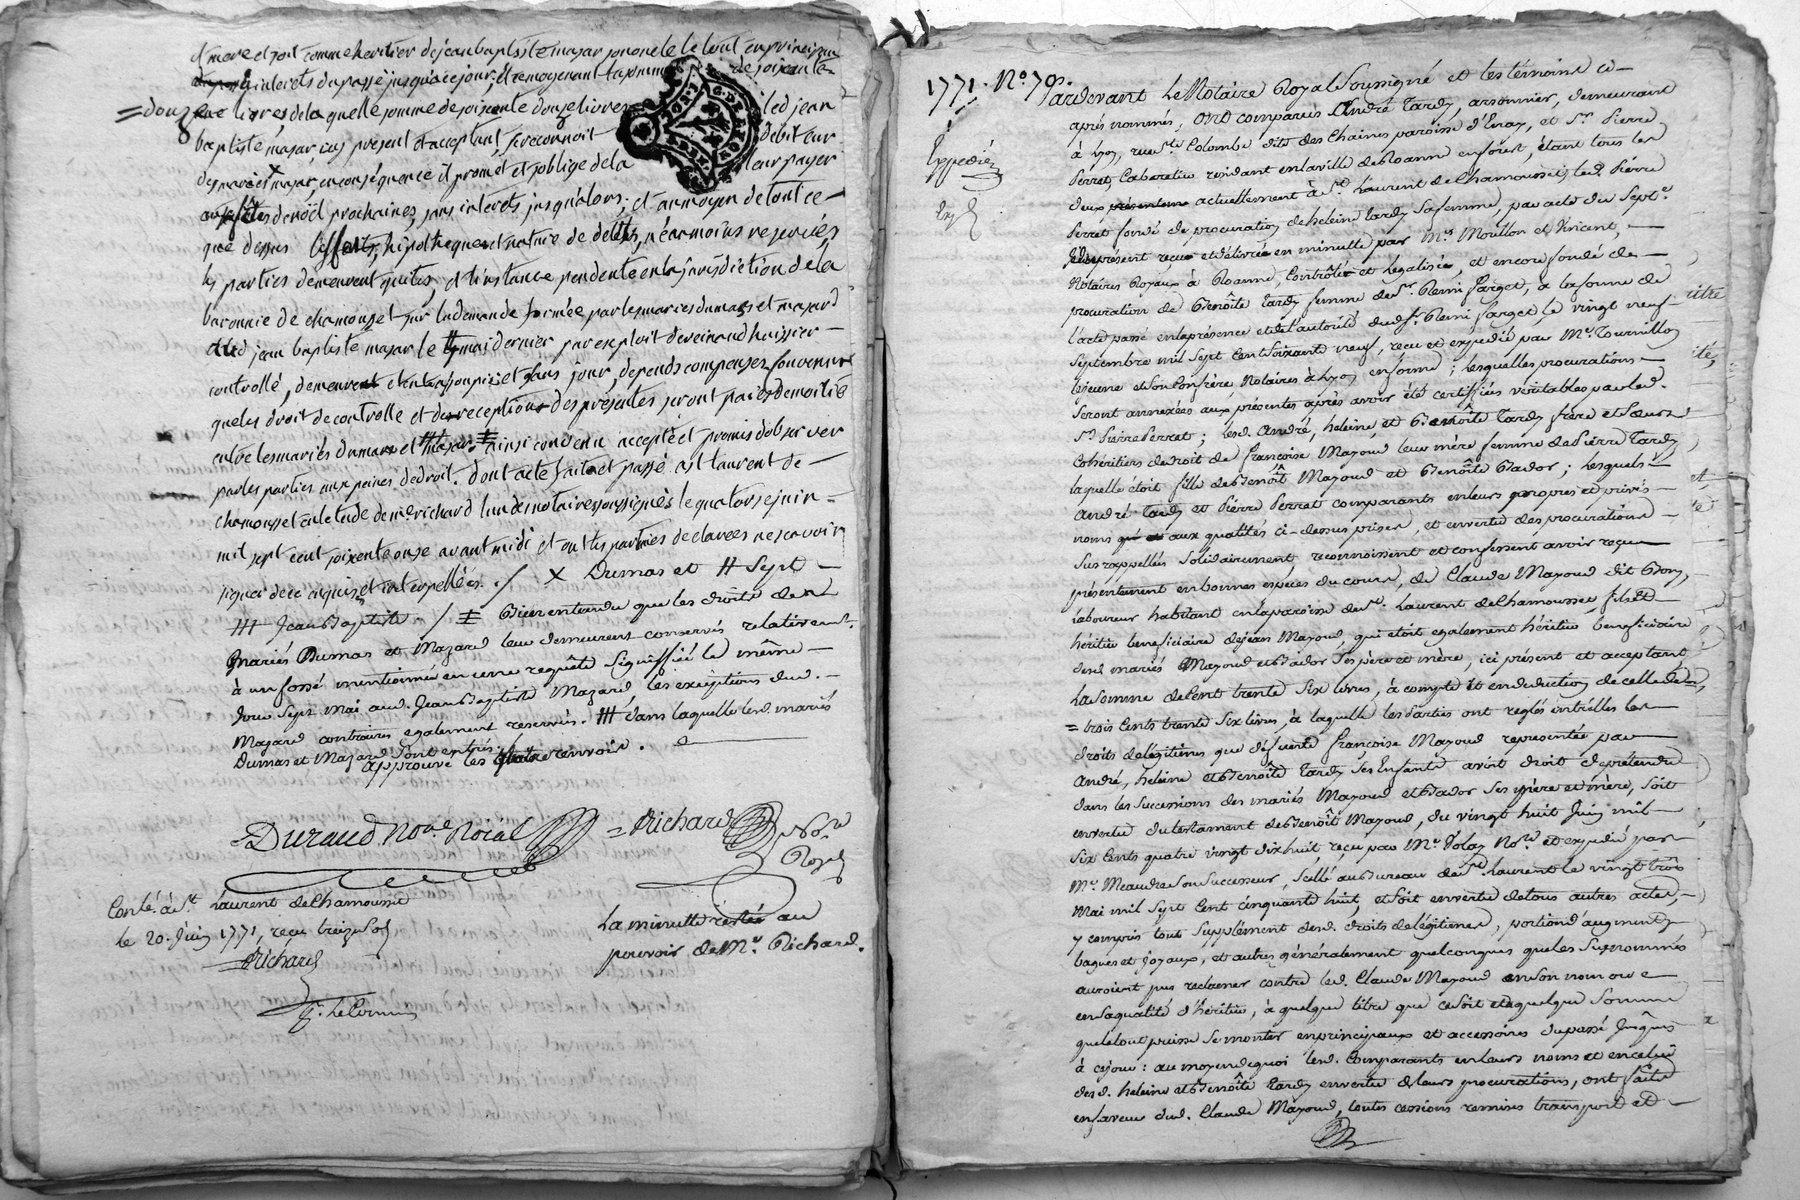 et mere et soit comme heritier de jean baptiste mazar son oncle le tout en principaux
interets du passé jusqu'à ce jour, et moyenant la somme de soixente
= douze livres, de la quelle somme de soixente douze livres led jean
baptiste mazar, icy present et acceptant, se reconnoit debiteur
des mariés x mazar, en conséquence il promet et s'oblige de la leur payer
aux fêtes de noël prochaines, sans interets jusqu'alors, et au moyen de tout ce
que dessus les hipotheque et nature de dette, néanmoins reservés,
les parties demeurent quites, et l'instance pendente en la jurisdiction de la
baronnie de chamousset sur la demande formée par les mariés dumas et mazard
aud jean baptiste mazar le mai dernier par exploit deveinand huissier
controllé, demeure assoupie et sans jour, depends compensez, convenu
que les droit de controlle et receptions des presentes seront paiés de moitié
entre les mariés dumas et mazar ainsi convenu accepté et promis d'observer
par les parties aux peines de droit. dont acte fait et passé à st laurent de
chamousset en l'etude de me richard l'un des notaires soussignés le quatorze juin
mil sept cent soixente onze avant midi et ont les parties declarées ne scavoir
signer de ce enquises et interpellées ./ X Dumas et # Sept
### Jean Baptiste / ≢ Bien entendu que les droits desd
Mariés Dumas et Mazard leur demeurent conservés relativement
à un fossé mentionné en une requête signiffiée le même
jour sept mai aud. Jean Baptiste Mazard, les exceptions dud.
Mazard contraires egalement reservés. ### dans laquelle lesd mariés
Dumas et Mazard sont entrés.
approuvé les quatre renvois.
Duraud Nore Roial
= Richard Nore
Royal
Conlé à St Laurent de Chamousset
le 20. Juin 1771, reçu treize sols
Richard
La minutte restée au
pouvoir de Me Richard.
1771. No 79.
Expediée
Pardevant Le Notaire Royal Soussigné et les témoins ci-
après nommés, ont comparus André Tardy, arsonnier, demeurant
à Lyon, rue Ste Colombe dite des Chaines paroisse d'Enay, et Sr Pierre
Perret, Cabaretier residant en la ville de Roanne en forest, étant tous les
deux actuellement à St Laurent de Chamousset, led. Pierre
Perret fondé de procuration de heleine Tardy sa femme, par acte du Sept.e
du present reçue et délivrée en minutte par Mrs Moullon et Vincent,
Notaires Royaux à Roanne, Contrôlée et Legalisée, et encore fondé de
procuration de Benoîte Tardy femme de Sr Remi Farget, à la forme de
l'acte passé en la présence et de l'autorité dud. Sr Remi Farget le vingt neuf
Septembre mil Sept Cent Soixante neuf, reçu et expedié par Me Tournillon
lejeune et Son Confrère, Notaires à Lyon en forme; lesquelles procurations
Seront annexées aux présentes après avoir été certifiées véritables par led.
Sr Pierre Perret; lesd. André, heleine, et Benoîte Tardy frère et Sœurs
Cohéritiers de droit de Françoise Mazoud leur mère femme de Pierre Tardy
laquelle étoit fille de Benoît Mazoud et Benoîte Bador; lesquels
André Tardy et Pierre Perret comparants en leurs propres et privés
noms et aux qualités ci-dessus prises, et envertu des procurations
Sus rappellés Solidairement, reconnoissent et confessent avoir reçu
présentement en bonnes espèces du cours, de Claude Mazoud dit Bory,
laboureur habitant en la paroisse de St. Laurent de Chamousset, fils et
héritier beneficiaire de jean Mazoud, qui étoit egalement héritier beneficiaire
desd. mariés Mazoud et Bador Ses père et mère, ici présent et acceptant
La Somme de Cent trente Six livres, à compte et en deduction de celle de
= trois Cents trente Six livres, à laquelle les Parties ont reglés entr'elles les
droits de légitimes que deffuente Françoise Mazoud représentée par
André, heleine et Benoîte Tardy Ses Enfants avoit droit de prétendre
dans les Successions des mariés Mazoud et Bador Ses père et mère, Soit
envertu du testament de Benoît Mazoud, du vingt huit Juin mil
Six Cents quatre vingt dix huit, reçu par Me Volay Nore et expedié par
Me. Meaudre Son Successeur, Scellé au Bureau de St Laurent le vingt trois
Mai mil Sept Cent Cinquante huit, et Soit envertu de tous autres actes,
y compris tout Supplément desd. droits de légitimes, portion d'augment
bagues et joyaux, et autres généralement quelconques que les Susnommés
auroient pus reclamer contre led. Claude Mazoud en Son nom ou
en Sa qualité d'héritier, à quelque titre que ce Soit et à quelque Somme
que le tout puisse Se monter en principaux et accessoires du passé Jusqu'à
à ce jour: au moyen de quoi lesd. Comparants en leurs noms et en celui
desd. heleine et Benoîte Tardy envertu de leurs procurations, ont fait
en faveur dud. Claude Mazoud, toutes cessions remises transport et